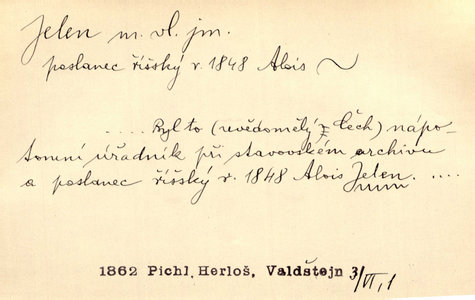 Jelen m. vl. jm.
poslanec říšský r. 1848 Alois ~
.... Byl to (uvědomělý z Čech) nápo-
tomení úřadník při stavovském archivu
a poslanec říšský r. 1848 Alois Jelen. ....
1862 Pichl, Herloš, Valdštejn 3/VI, 1